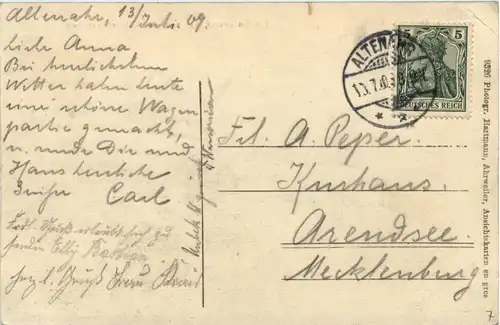 Altenahr, 13/Juli. 09.
Liebe Anna.
Bei herrlichstem
Wetter haben heute
eine schöne Wagen
partie gemacht,
u. sende Dir und
Hans herzliche
Grüße Carl
erlaubt sich zu
senden
herzl. Gruß Frau
ALTENAHR
13.7.0
5 5
DEUTSCHES REICH
Frl. A. Peper.
Kurhaus.
Arendsee.
Mecklenburg
9326 Photogr. Hartmann, Ahrweiler, Ansichtskarten en gros
7